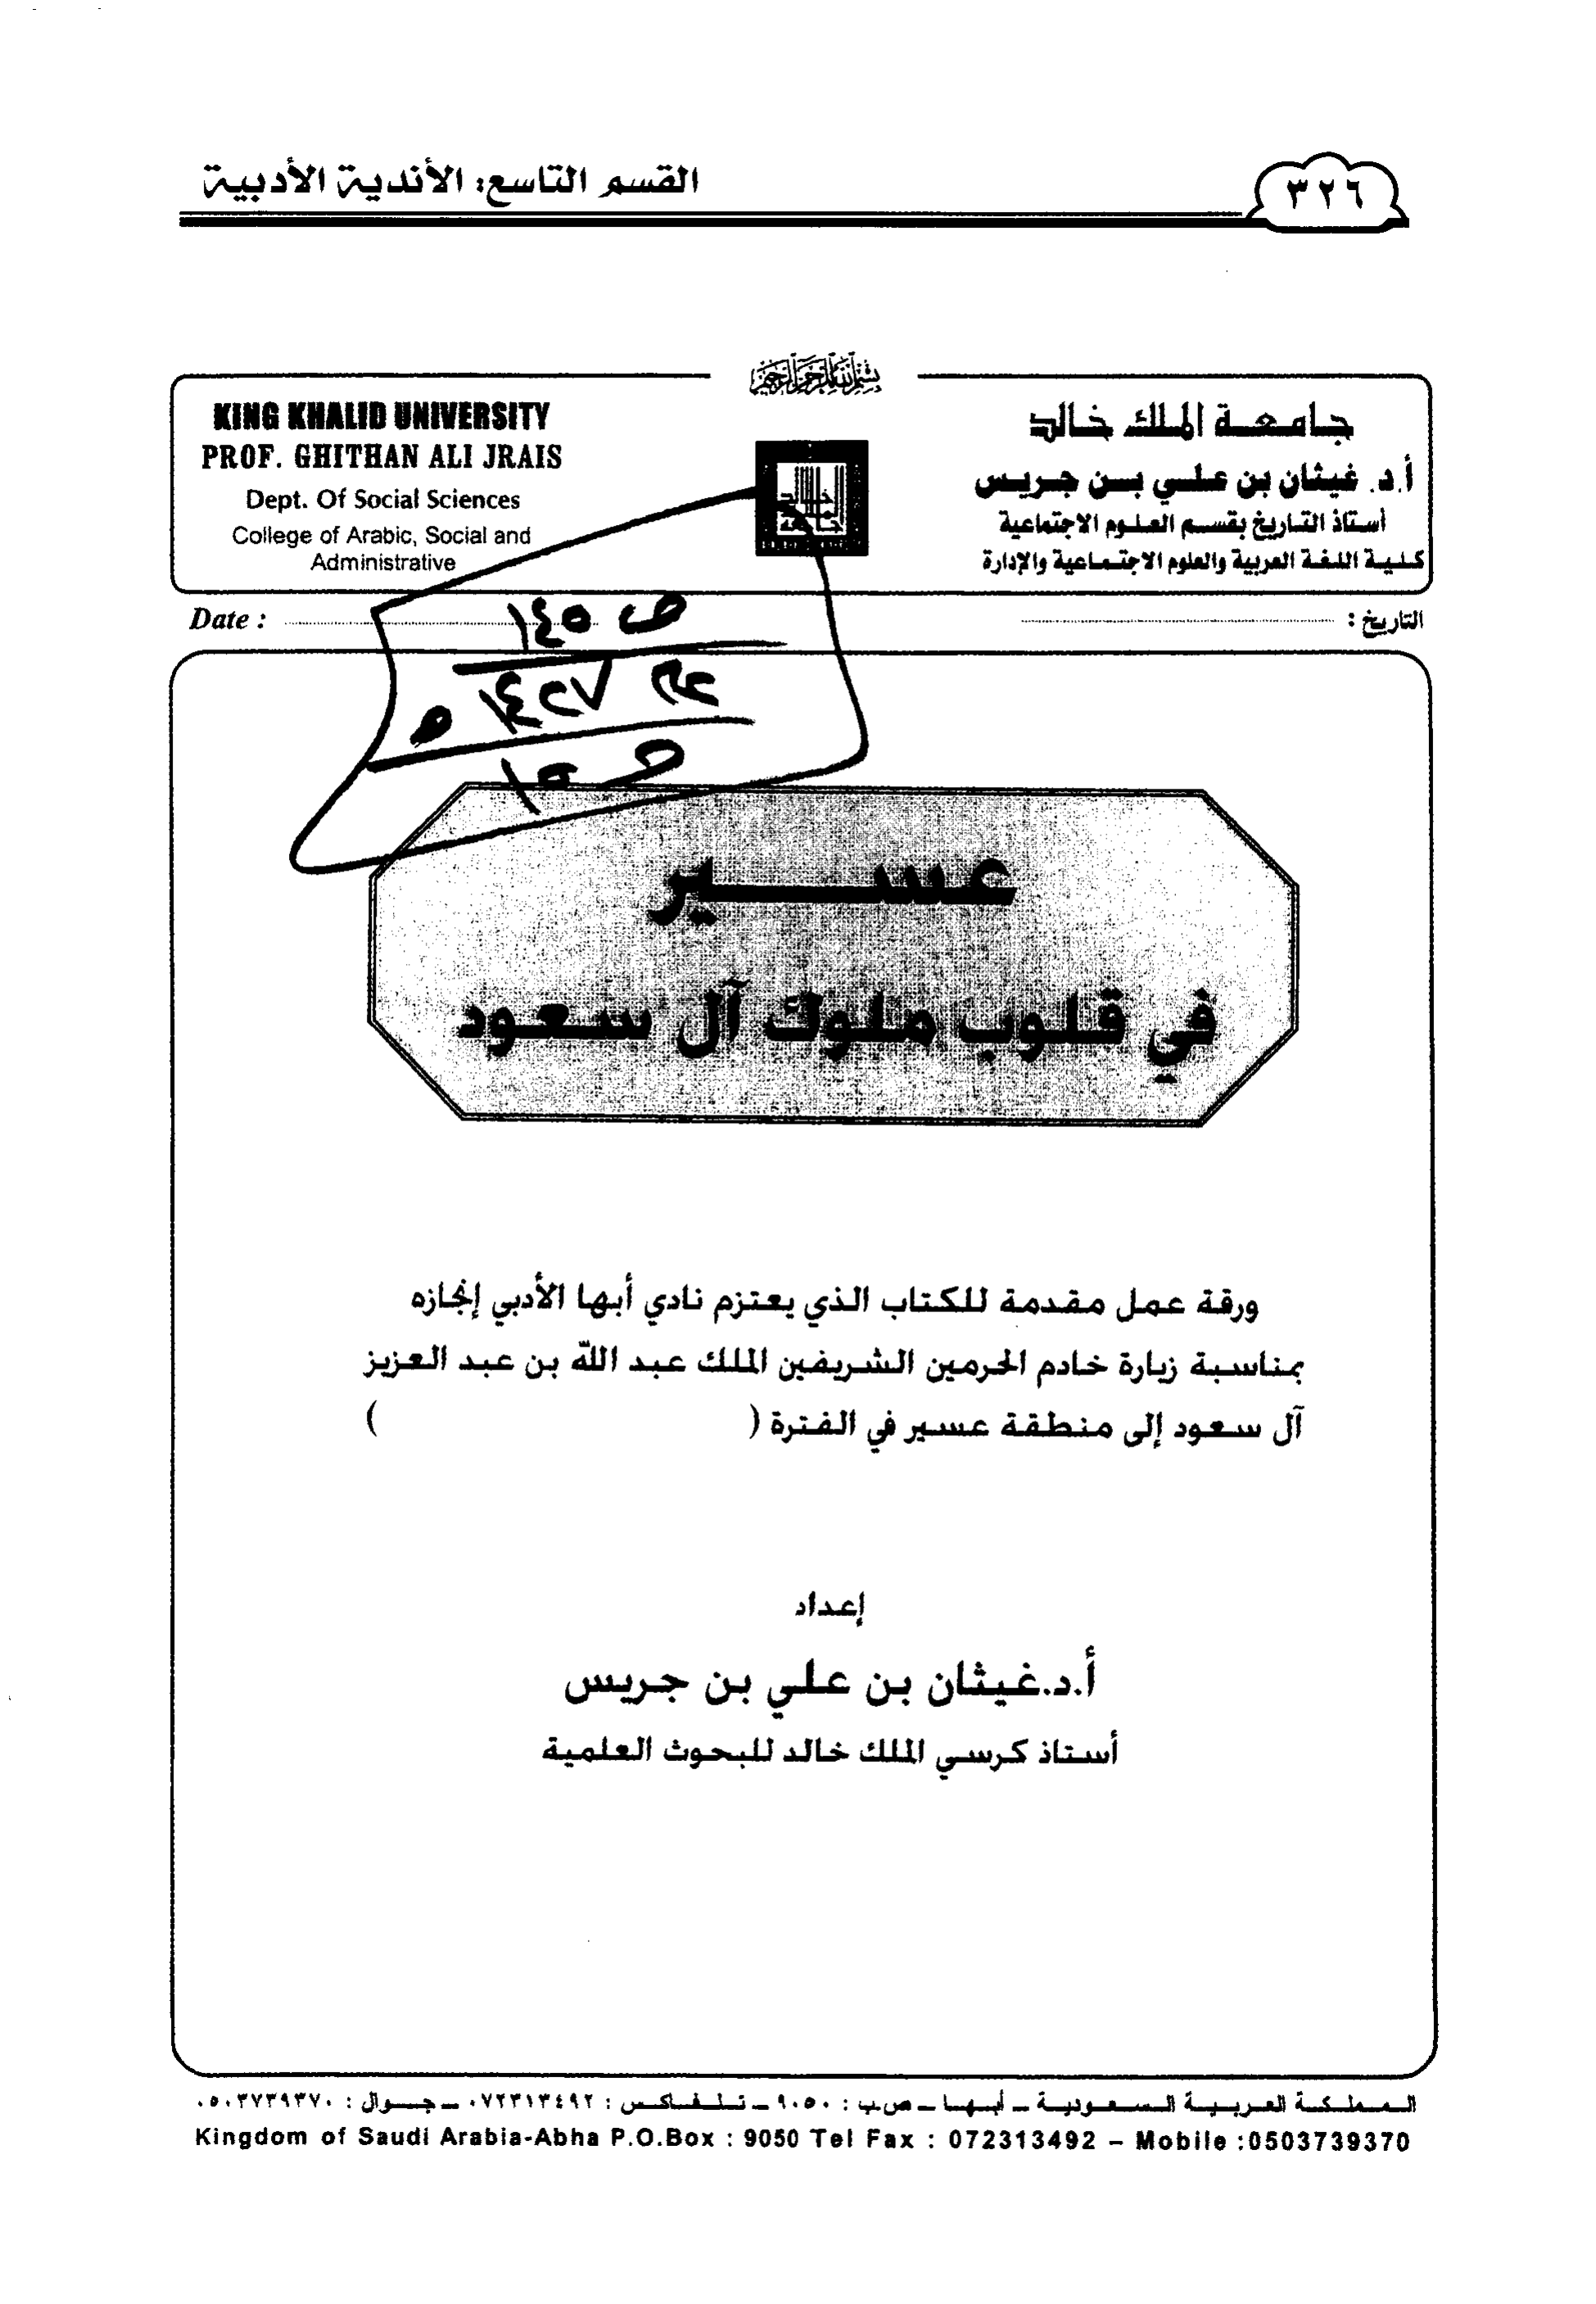 القسم التاسع: الأندية الأدبية
٣٢٦
بسم الله الرحمن الرحيم
KING KHALID UNIVERSITY
PROF. GHITHAN ALI JRAIS
Dept. Of Social Sciences
College of Arabic, Social and
Administrative
جامعة الملك خالد
أ.د. غيثان بن علي بن جريس
أستاذ التاريخ بقسم العلوم الاجتماعية
كلية اللغة العربية والعلوم الاجتماعية والإدارة
Date :
التاريخ :
ص ١٤٥
عام ١٤٢٧ هـ
ص ١٥
عسير
في قلوب ملوك آل سعود
ورقة عمل مقدمة للكتاب الذي يعتزم نادي أبها الأدبي إنجازه
بمناسبة زيارة خادم الحرمين الشريفين الملك عبد الله بن عبد العزيز
آل سعود إلى منطقة عسير في الفترة ( )
إعداد
أ.د.غيثان بن علي بن جريس
أستاذ كرسي الملك خالد للبحوث العلمية
المملكة العربية السعودية – أبها – ص.ب : ٩٠٥٠ – تلفاكس : ٠٧٢٣١٣٤٩٢ – جوال : ٠٥٠٣٧٣٩٣٧٠
Kingdom of Saudi Arabia-Abha P.O.Box : 9050 Tel Fax : 072313492 – Mobile :0503739370